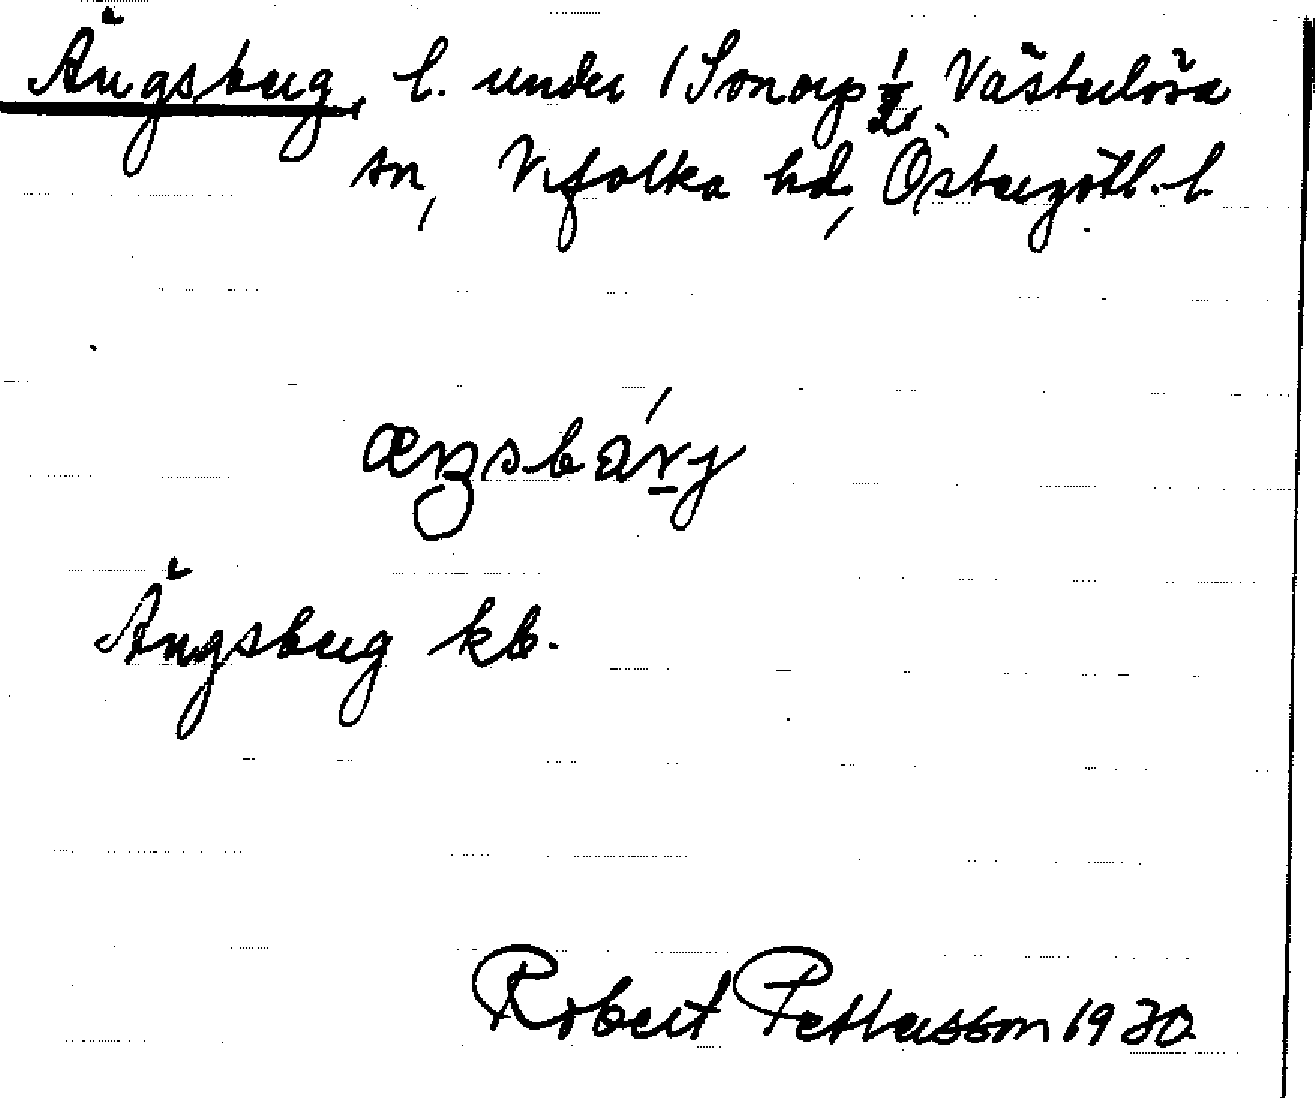 Ängsberg, l. under 1 Sonorp 1/2, Västerlösa
sn, Vifolka hd, Östergötl. l.
æŋsbárj
Ängsberg kb.
Robert Pettersson 1930